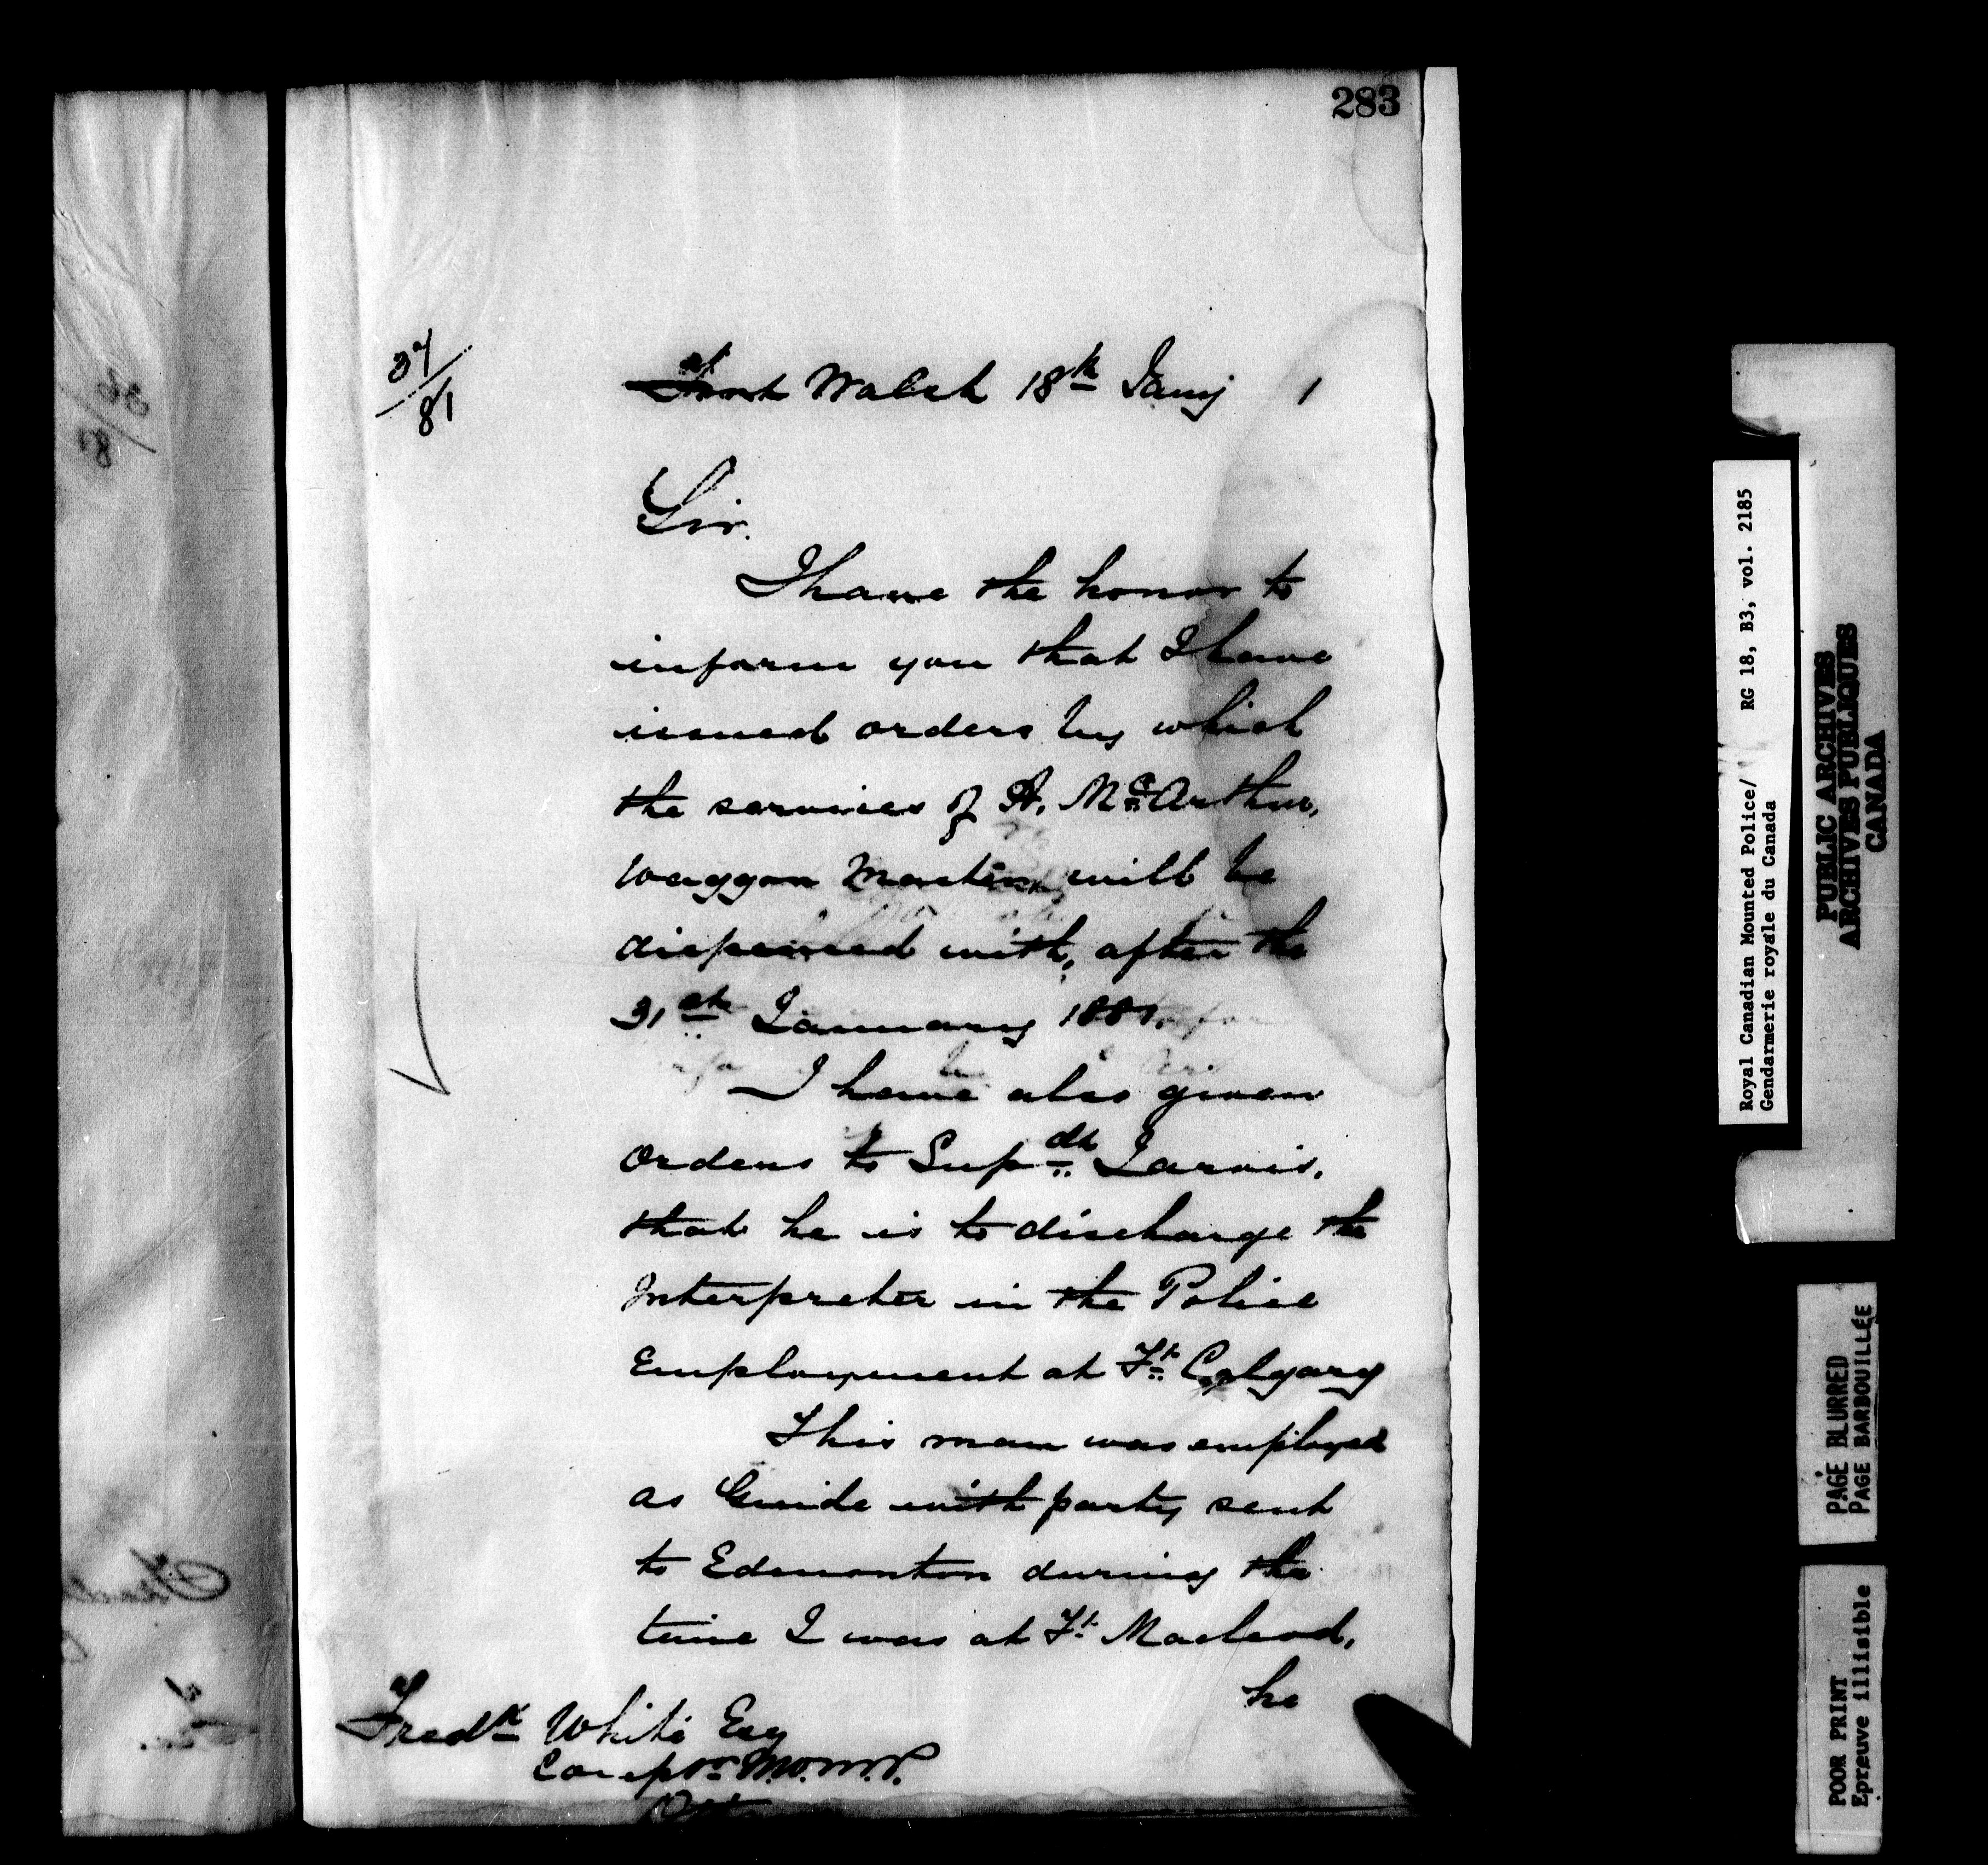 283
37/81
Fort Walsh 18th Jany 1
Sir.
I have the honor to
inform you that I have
issued orders by which
the services of A. McArthur,
Waggon Master, will be
dispensed with, after the
31st January 1881.
I have also given
orders to Supdt Jarvis,
that he is to discharge the
Interpreter in the Police
Employment at Ft Calgary
This man was employed
as Guide with party sent
to Edmonton during the
time I was at Ft Macleod,
he
Fredk White Esq
Compr N.W.M.P.
Royal Canadian Mounted Police/ RG 18, B3, vol. 2185
Gendarmerie royale du Canada
PUBLIC ARCHIVES
ARCHIVES PUBLIQUES
CANADA
PAGE BLURRED
PAGE BARBOUILLÉE
POOR PRINT
Epreuve illisible